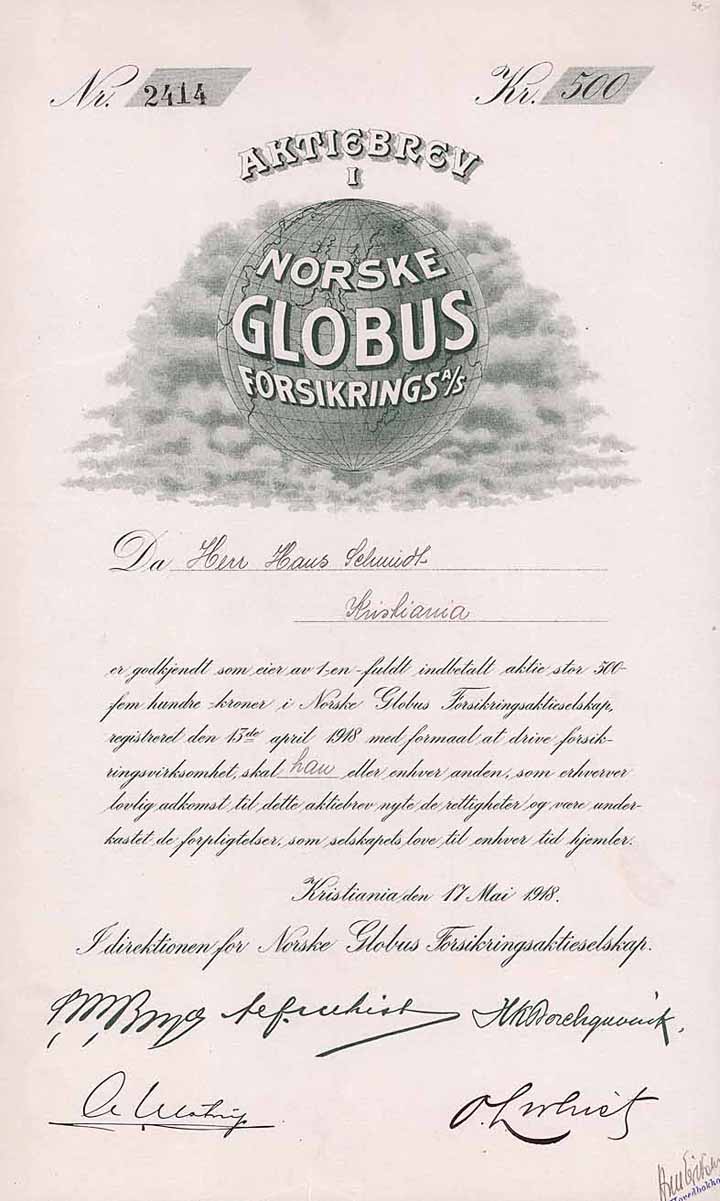 Nr. 2414
Kr. 500
AKTIEBREV
I
NORSKE
GLOBUS
FORSIKRINGS A/S
Da Herr Hans Schmidt
Kristiania
er godkjendt som eier av 1-en-fuldt indbetalt aktie stor 500-
fem hundre-kroner i Norske Globus Forsikringsaktieselskap,
registreret den 13de april 1918 med formaal at drive forsik-
ringsvirksomhet, skal han eller enhver anden, som erhverver
lovlig adkomst til dette aktiebrev nyte de rettigheter og være under-
kastet de forpligtelser, som selskapets love til enhver tid hjemler.
Kristiania den 17 Mai 1918.
I direktionen for Norske Globus Forsikringsaktieselskap.